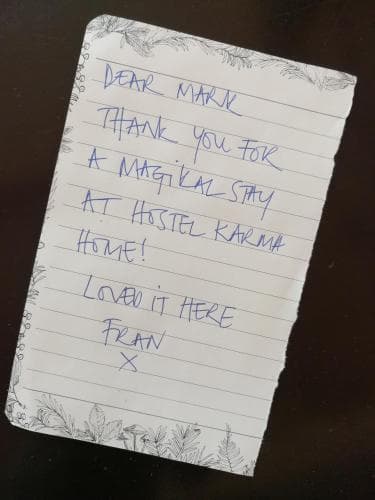 DEAR MARK
THANK YOU FOR
A MAGiKAL STAY
AT HOSTEL KARMA
HOME!
LOVED iT HERE
FRAN
X